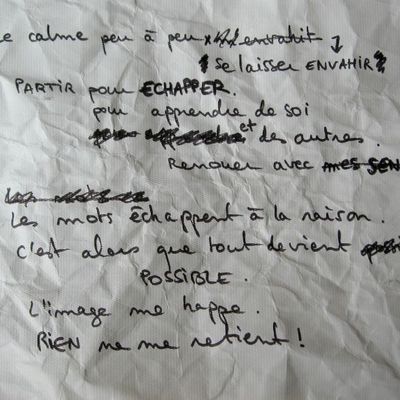 e calme peu à peu envahit
se laisser ENVAHIR
PARTIR pour ECHAPPER.
pour apprendre de soi
et des autres.
Renouer avec mes SEN
Les mots échappent à la raison.
c'est alors que tout devient
POSSIBLE.
L'image me happe.
RIEN ne me retient!